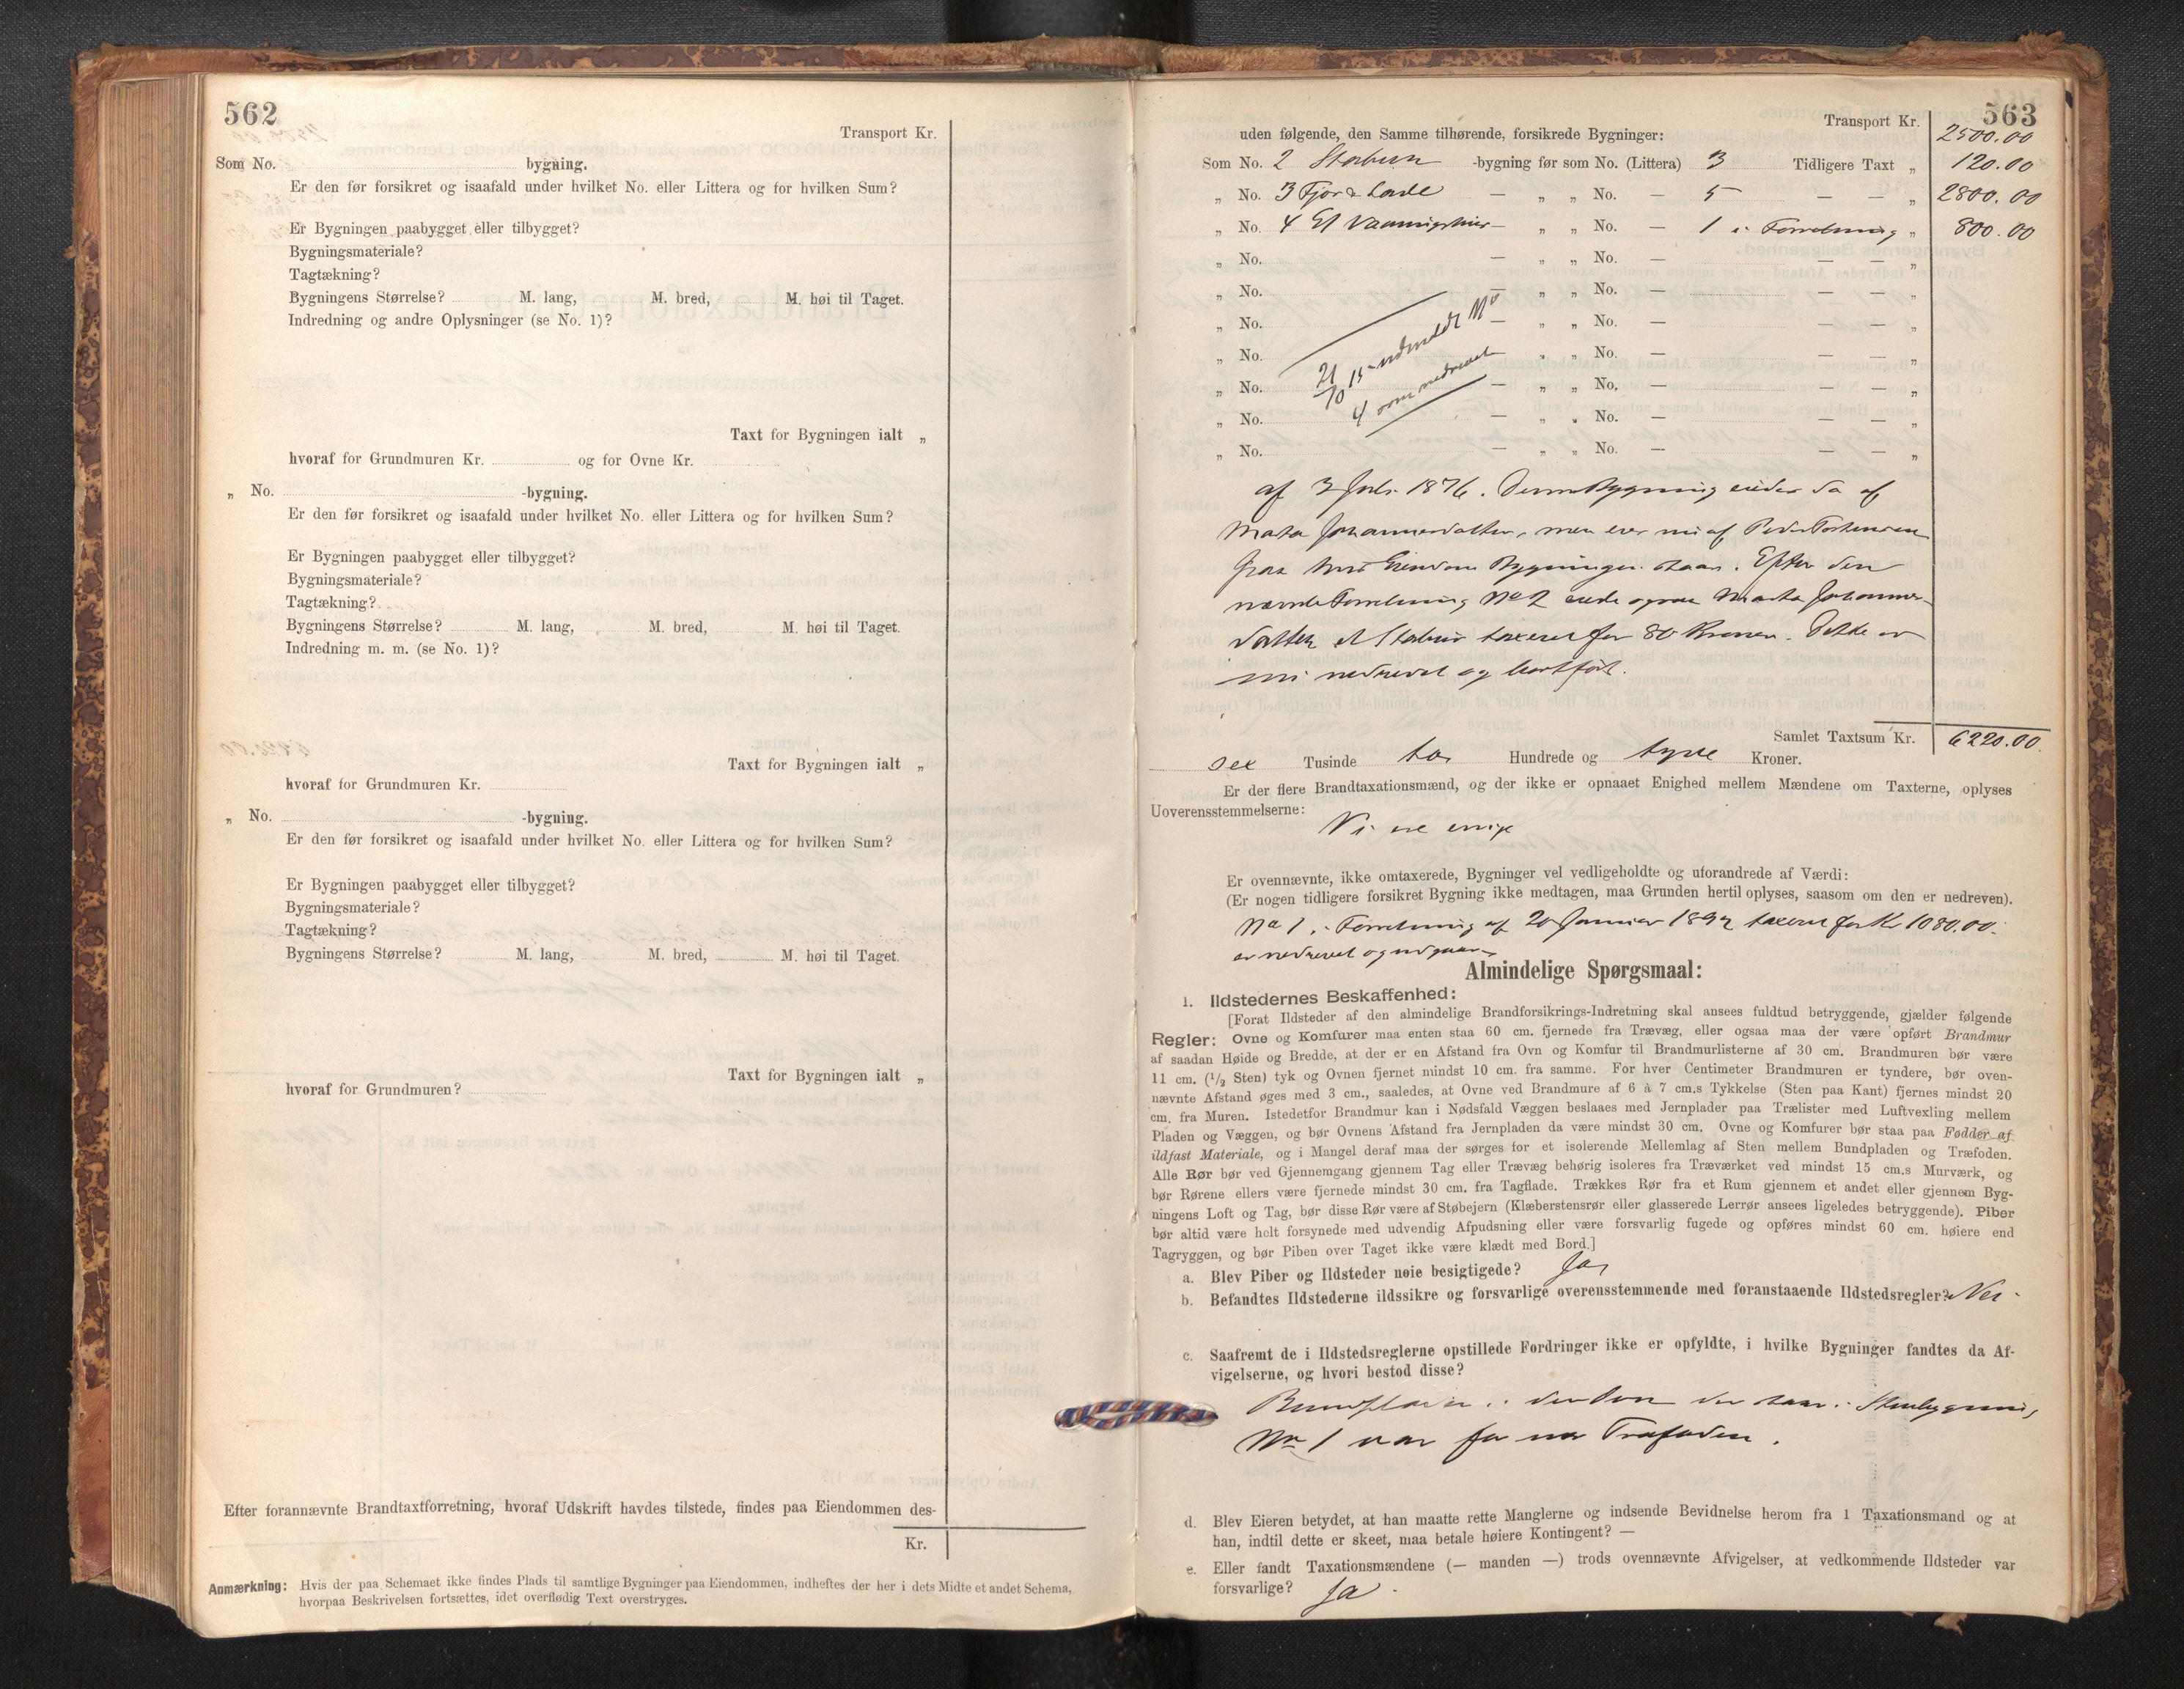 562
Transport Kr.
Som No. bygning.
Er den før forsikret og isaafald under hvilket No. eller Littera og for hvilken Sum?
Er Bygningen paabygget eller tilbygget?
Bygningsmateriale?
Tagtækning?
Bygningens Størrelse? M. lang, M. bred, M. høi til Taget.
Indredning og andre Oplysninger (se No. 1)?
Taxt for Bygningen ialt „
hvoraf for Grundmuren Kr. og for Ovne Kr.
„ No. -bygning.
Er den før forsikret og isaafald under hvilket No. eller Littera og for hvilken Sum?
Er Bygningen paabygget eller tilbygget?
Bygningsmateriale?
Tagtækning?
Bygningens Størrelse? M. lang, M. bred, M. høi til Taget.
Indredning m. m. (se No. 1)?
Taxt for Bygningen ialt „
hvoraf for Grundmuren Kr.
„ No. -bygning.
Er den før forsikret og isaafald under hvilket No. eller Littera og for hvilken Sum?
Er Bygningen paabygget eller tilbygget?
Bygningsmateriale?
Tagtækning?
Bygningens Størrelse? M. lang, M. bred, M. høi til Taget.
Taxt for Bygningen ialt „
hvoraf for Grundmuren?
Efter forannævnte Brandtaxtforretning, hvoraf Udskrift havdes tilstede, findes paa Eiendommen des-
Kr.
Anmærkning: Hvis der paa Schemaet ikke findes Plads til samtlige Bygninger paa Eiendommen, indheftes der her i dets Midte et andet Schema,
hvorpaa Beskrivelsen fortsættes, idet overflødig Text overstryges.
563
Transport Kr. 2500.00
uden følgende, den Samme tilhørende, forsikrede Bygninger:
Som No. 2 Stabur -bygning før som No. (Littera) 3 Tidligere Taxt „ 120.00
„ No. 3 Fjor & Lade — „ „ No. — 5 — — „ 2800.00
„ No. 4 Et Vaaningshus — „ „ No. — 1 i Forretning „ 800.00
„ No. — „ „ No. — — — „
„ No. — „ „ No. — — — „
„ No. — „ „ No. — — — „
„ No. — „ „ No. — — — „
„ No. — „ „ No. — — — „
„ No. — „ „ No. — — — „
„ No. — „ „ No. — — — „
21/10 15 udmeldt No
4 som nedrevet
af 3 Juli 1876. Denne Bygning eiedes da af
Marta Johannesdatter, men eies nu af Peder Torstensen
paa hvis Eiendom Bygningen staar. Efter den
nævnte Forretning No 2 eiede ogsaa Marta Johannes-
datter et Stabur taxeret for 80 Kroner. Dette er
nu nedrevet og bortført.
Samlet Taxtsum Kr. 6220.00.
sex Tusinde to Hundrede og tyve Kroner.
Er der flere Brandtaxationsmænd, og der ikke er opnaaet Enighed mellem Mændene om Taxterne, oplyses
Uoverensstemmelserne:
Vi ere enige
Er ovennævnte, ikke omtaxerede, Bygninger vel vedligeholdte og uforandrede af Værdi:
(Er nogen tidligere forsikret Bygning ikke medtagen, maa Grunden hertil oplyses, saasom om den er nedreven).
No 1 i Forretning af 20 Januar 1892 taxeret for Kr 1080.00.
er nedrevet og udgaar
Almindelige Spørgsmaal:
1. Ildstedernes Beskaffenhed:
[Forat Ildsteder af den almindelige Brandforsikrings-Indretning skal ansees fuldtud betryggende, gjælder følgende
Regler: Ovne og Komfurer maa enten staa 60 cm. fjernede fra Trævæg, eller ogsaa maa der være opført Brandmur
af saadan Høide og Bredde, at der er en Afstand fra Ovn og Komfur til Brandmurlisterne af 30 cm. Brandmuren bør være
11 cm. (1/2 Sten) tyk og Ovnen fjernet mindst 10 cm. fra samme. For hver Centimeter Brandmuren er tyndere, bør oven-
nævnte Afstand øges med 3 cm., saaledes, at Ovne ved Brandmure af 6 à 7 cm.s Tykkelse (Sten paa Kant) fjernes mindst 20
cm. fra Muren. Istedetfor Brandmur kan i Nødsfald Væggen beslaaes med Jernplader paa Trælister med Luftvexling mellem
Pladen og Væggen, og bør Ovnens Afstand fra Jernpladen da være mindst 30 cm. Ovne og Komfurer bør staa paa Fødder af
ildfast Materiale, og i Mangel deraf maa der sørges for et isolerende Mellemlag af Sten mellem Bundpladen og Træfoden.
Alle Rør bør ved Gjennemgang gjennem Tag eller Trævæg behørig isoleres fra Træværket ved mindst 15 cm.s Murværk, og
bør Rørene ellers være fjernede mindst 30 cm. fra Tagflade. Trækkes Rør fra et Rum gjennem et andet eller gjennem Byg-
ningens Loft og Tag, bør disse Rør være af Støbejern (Klæberstensrør eller glasserede Lerrør ansees ligeledes betryggende). Piber
bør altid være helt forsynede med udvendig Afpudsning eller være forsvarlig fugede og opføres mindst 60 cm. høiere end
Tagryggen, og bør Piben over Taget ikke være klædt med Bord.]
a. Blev Piber og Ildsteder nøie besigtigede? Ja
b. Befandtes Ildstederne ildssikre og forsvarlige overensstemmende med foranstaaende Ildstedsregler? Nei.
c. Saafremt de i Ildstedsreglerne opstillede Fordringer ikke er opfyldte, i hvilke Bygninger fandtes da Af-
vigelserne, og hvori bestod disse?
Bundpladen i den Ovn der staar i Stuebygning
No 1 var for nær Træfoden.
d. Blev Eieren betydet, at han maatte rette Manglerne og indsende Bevidnelse herom fra 1 Taxationsmand og at
han, indtil dette er skeet, maa betale høiere Kontingent? —
e. Eller fandt Taxationsmændene (— manden —) trods ovennævnte Afvigelser, at vedkommende Ildsteder var
forsvarlige? Ja.